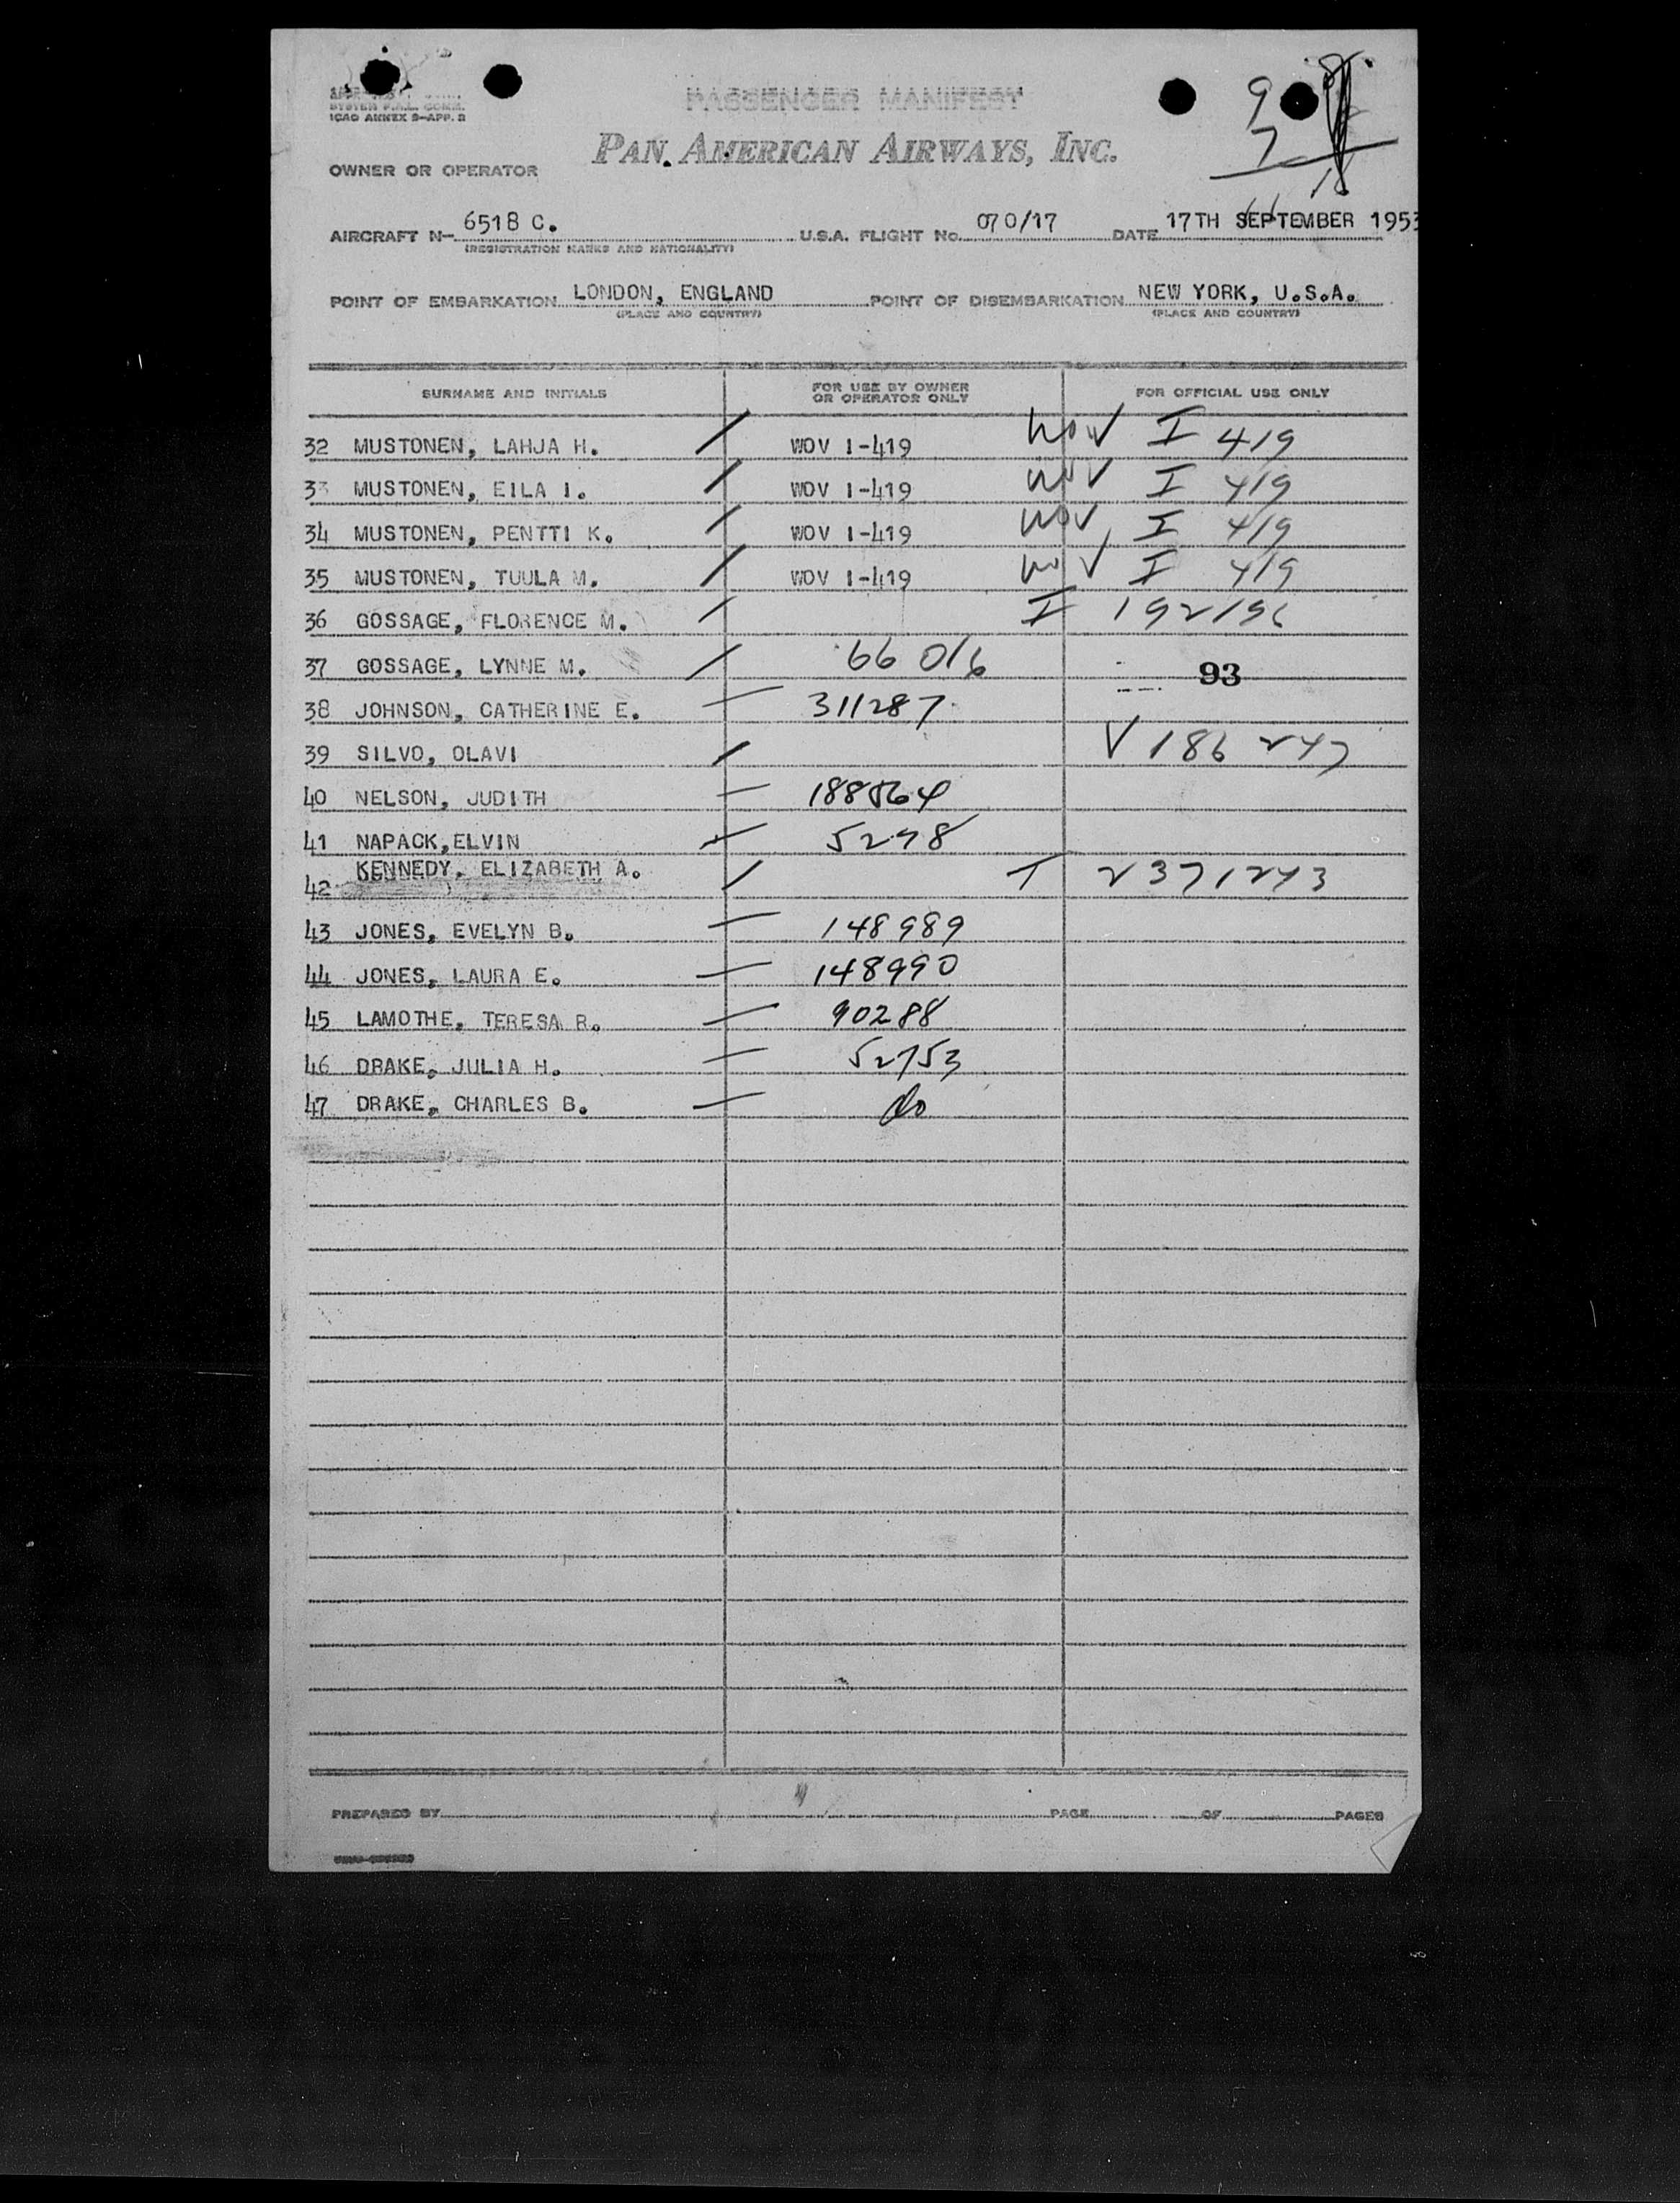 SYSTEM F.A.L. COMM.
ICAO ANNEX 9-APP. 2
PASSENGER MANIFEST
9
7
18
PAN AMERICAN AIRWAYS, INC.
OWNER OR OPERATOR
AIRCRAFT N- 6518 C. U.S.A. FLIGHT No. 070/17 DATE 17TH SEPTEMBER 1953
(REGISTRATION MARKS AND NATIONALITY)
POINT OF EMBARKATION LONDON, ENGLAND POINT OF DISEMBARKATION NEW YORK, U.S.A.
(PLACE AND COUNTRY) (PLACE AND COUNTRY)
SURNAME AND INITIALS FOR USE BY OWNER OR OPERATOR ONLY FOR OFFICIAL USE ONLY
32 MUSTONEN, LAHJA H. / WOV I-419 WOV I 419
33 MUSTONEN, EILA I. / WOV I-419 WOV I 419
34 MUSTONEN, PENTTI K. / WOV I-419 WOV I 419
35 MUSTONEN, TUULA M. / WOV I-419 WOV I 419
36 GOSSAGE, FLORENCE M. / I 192196
37 GOSSAGE, LYNNE M. / 66016 93
38 JOHNSON, CATHERINE E. — 311287
39 SILVO, OLAVI / V 186247
40 NELSON, JUDITH — 188564
41 NAPACK, ELVIN — 5298
42 KENNEDY, ELIZABETH A. / T 2371243
43 JONES, EVELYN B. — 148989
44 JONES, LAURA E. — 148990
45 LAMOTHE, TERESA R. — 90288
46 DRAKE, JULIA H. — 52753
47 DRAKE, CHARLES B. — do
PREPARED BY PAGE OF PAGES